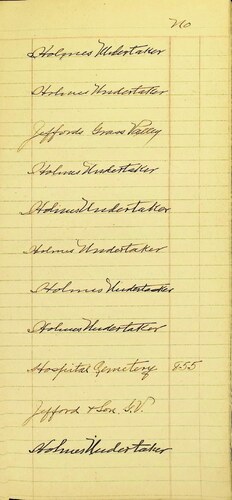 No
Holmes Undertaker
Holmes Undertaker
Jeffords Grass Valley
Holmes Undertaker
Holmes Undertaker
Holmes Undertaker
Holmes Undertaker
Holmes Undertaker
Hospital Cemetery 855
Jefford & Son G.V.
Holmes Undertaker